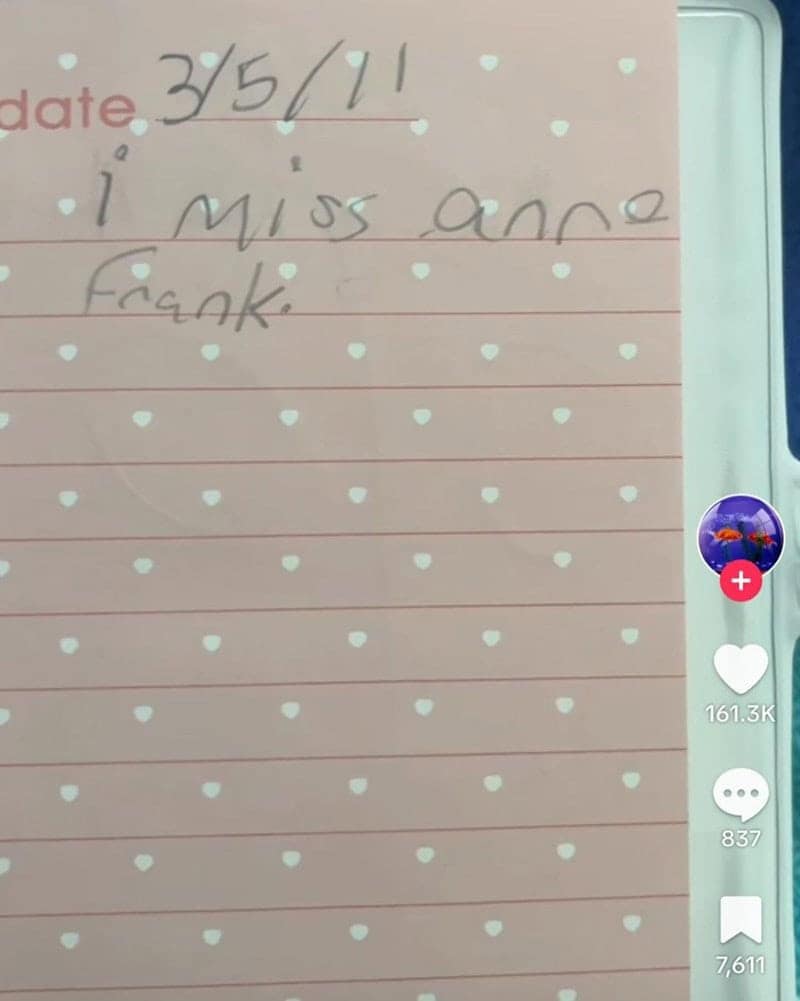 date 3/5/11
i miss anne
Frank.
161.3K
837
7,611